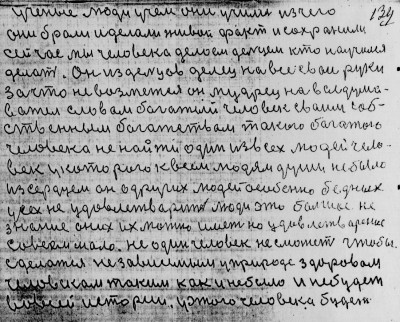 ученые люди учем они учили из чего
они брали и делали живой факт и сохранили
сейчас мы человека делаем делцем кто научился
делат. Он из делцов делец на все свои руки
за что не возмется он мудрец на все
словам богатый человек своим соб-
ственным богатством такого богатого
человека не найти один из всех людей чело-
век у которого к всем людям души не было
и сердцем он о других людей особенно бедных
усех не удовлетварит люди это болшое не
знание о них их можно имет но удовлетварение
совсем мало. не один человек не сможет чтобы
сделатся независимым у природе здоровым
человеком таким как и небыло и небудет
вовсей истории. у этого человека будет
139